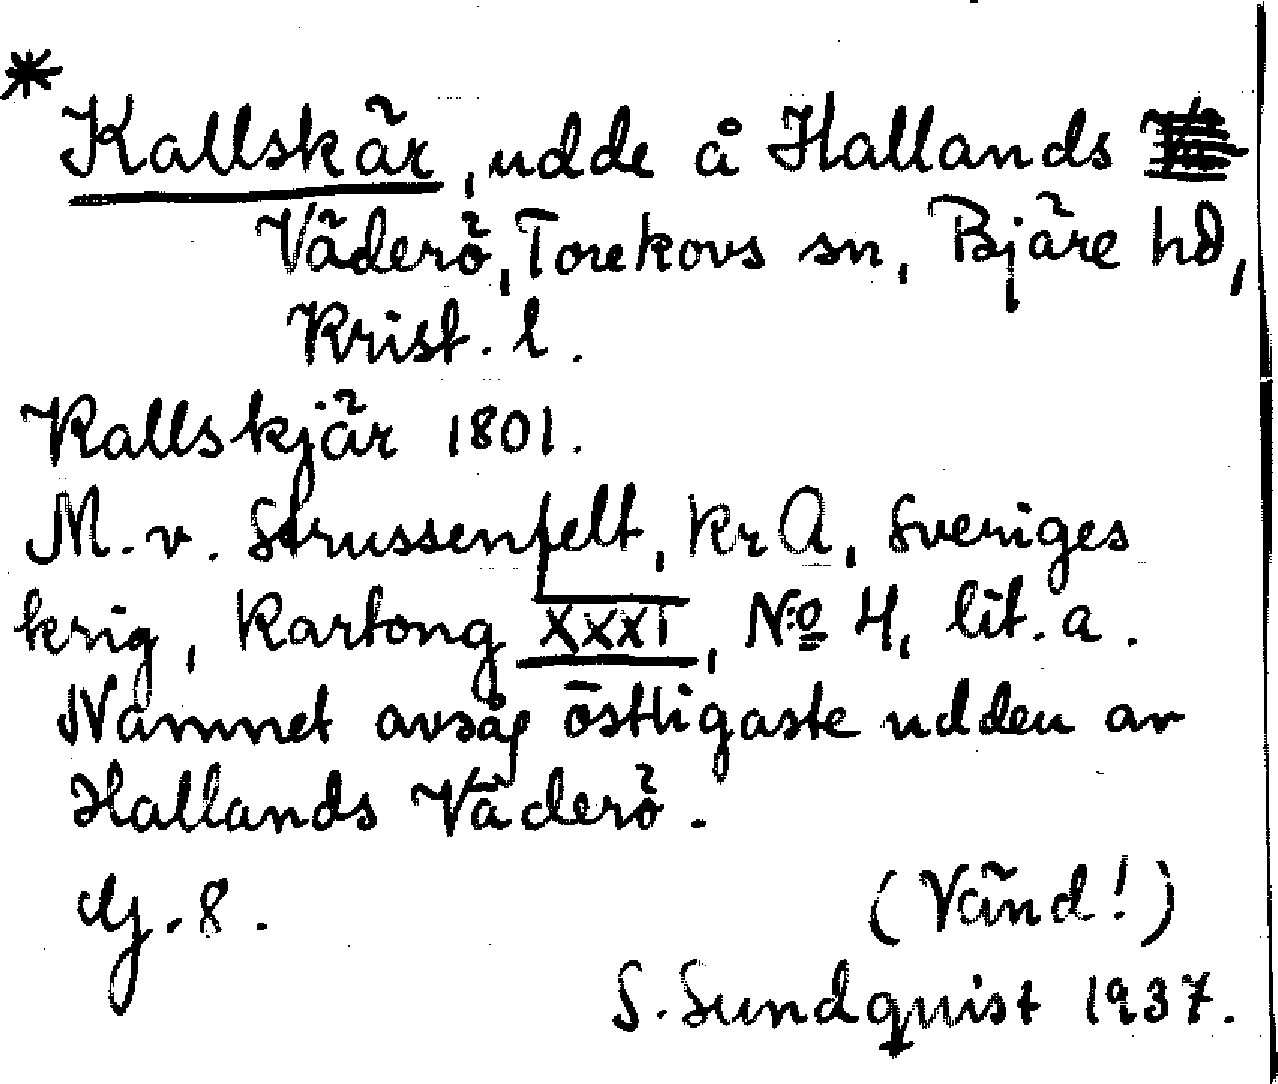 * Kallskär, udde å Hallands
Väderö, Torekovs sn, Bjäre hd,
Krist. l.
Kallskjär 1801.
M. v. Strussenfelt, KrA, Sveriges
krig, Kartong XXXI, No 4, lit. a.
Namnet avsåg östligaste udden av
Hallands Väderö.
8.
(Vänd!)
S. Sundquist 1937.